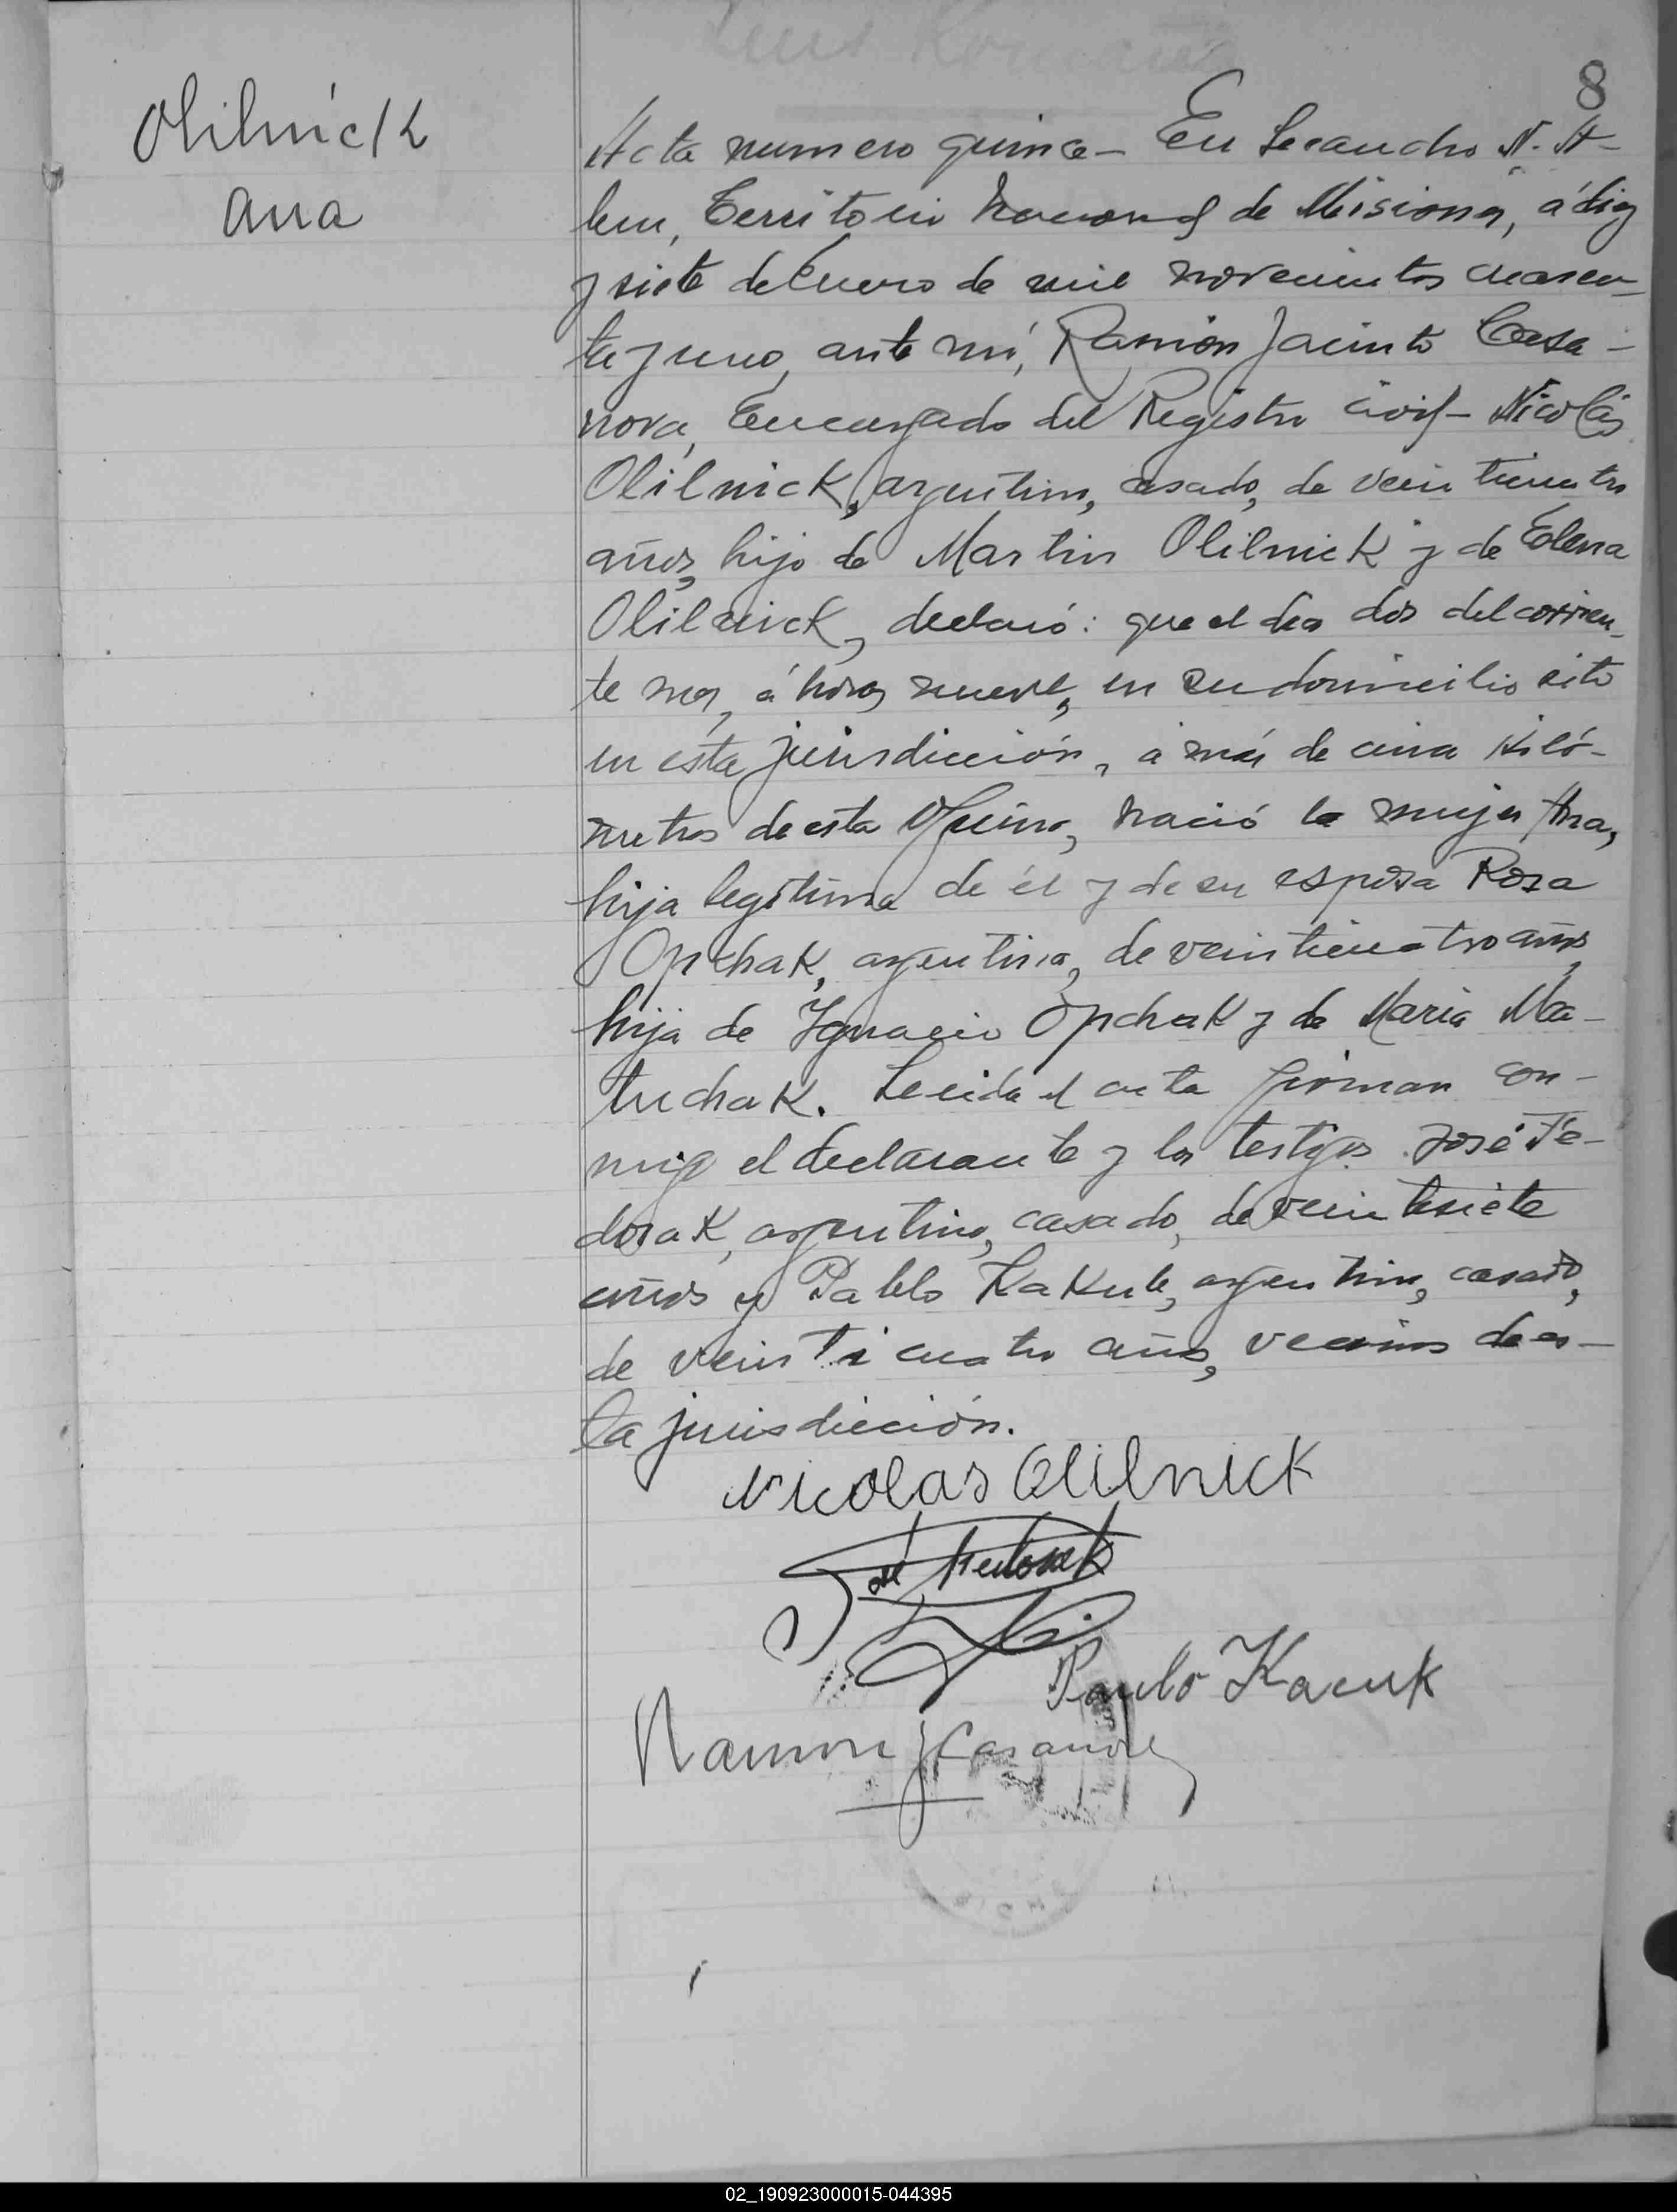 8
Olilnick
Ana
Acta numero quince - En Leandro N. A-
lem, Territorio Nacional de Misiones, á diez
y siete de Enero de mil novecientos cuaren-
ta y uno, ante mí, Ramón Jacinto Casa-
nova, Encargado del Registro Civil - Nicolás
Olilnick, argentino, casado, de veinticuatro
años, hijo de Martin Olilnick y de Elena
Olilnick, declaró: que el dia dos del corrien-
te mes, á horas nueve, en su domicilio sito
en esta jurisdicción, a más de cinco kiló-
metros de esta Oficina, nació la mujer Ana,
hija legítima de él y de su esposa Rosa
Opchak, argentina, de veinticuatro años,
hija de Ignacio Opchak y de Maria Ma-
tuchak. Leida el acta firman con-
migo el declarante y los testigos José Fe-
dorak, argentino, casado, de veintisiete
años y Pablo Kakuk, argentino, casado,
de veinticuatro años, vecinos de es-
ta jurisdicción.
Nicolas Olilnick
José Fedorak
Paulo Kacuk
Ramon J Casanova
02_190923000015-044395